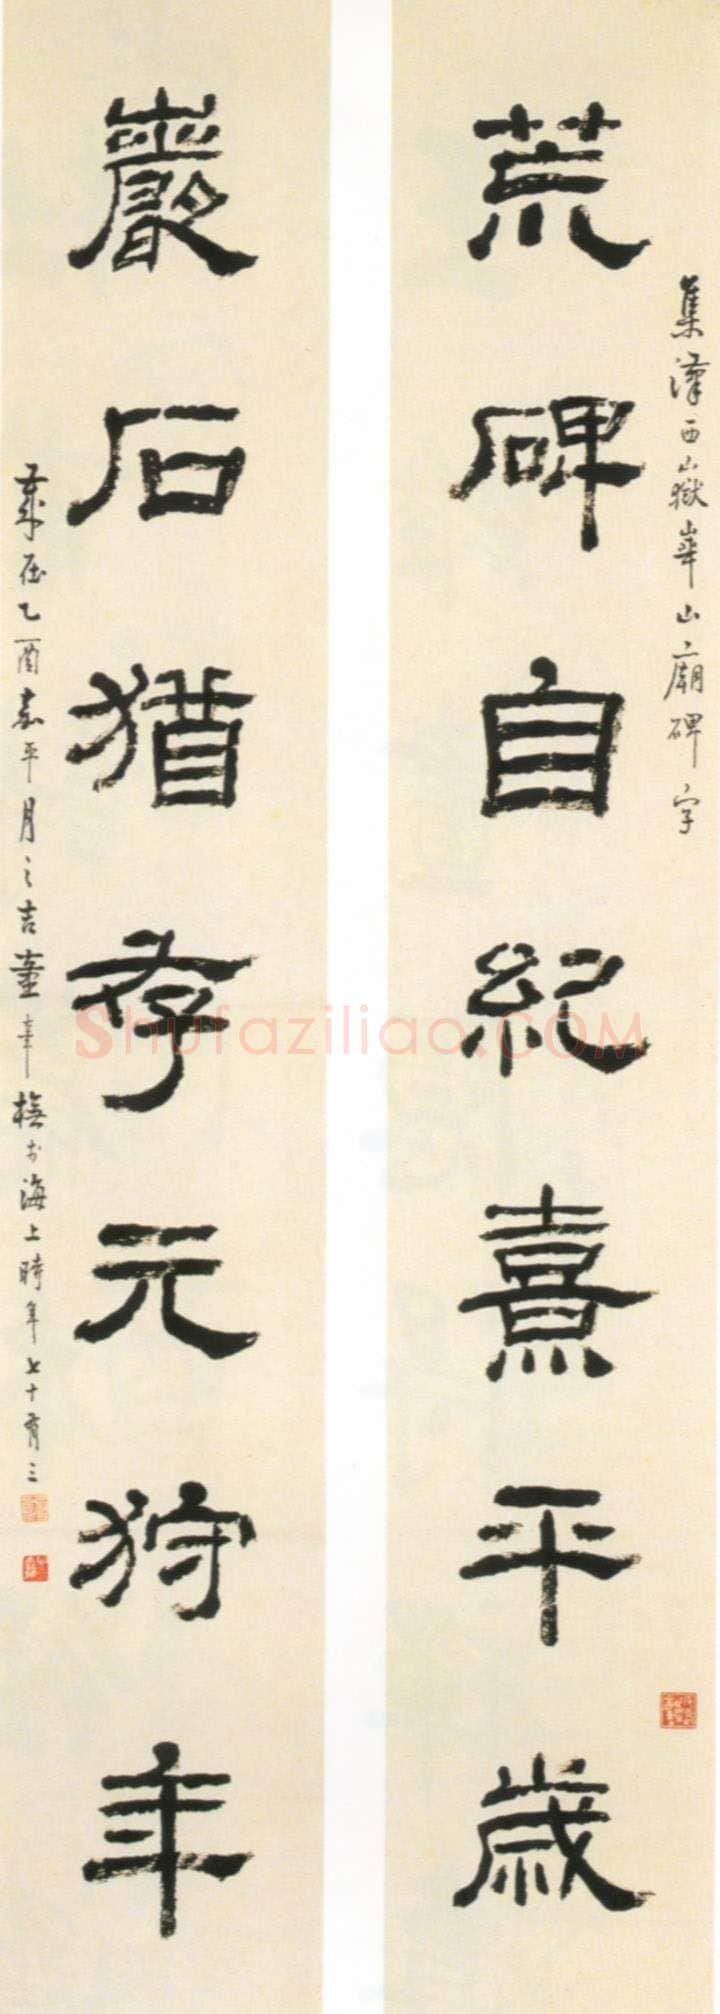 集漢西嶽崋山廟碑字
荒碑自紀熹平歲
巖石猶存元狩年
歲在乙酉嘉平月之吉橅於海上時年七十有三
Shufaziliao.COM